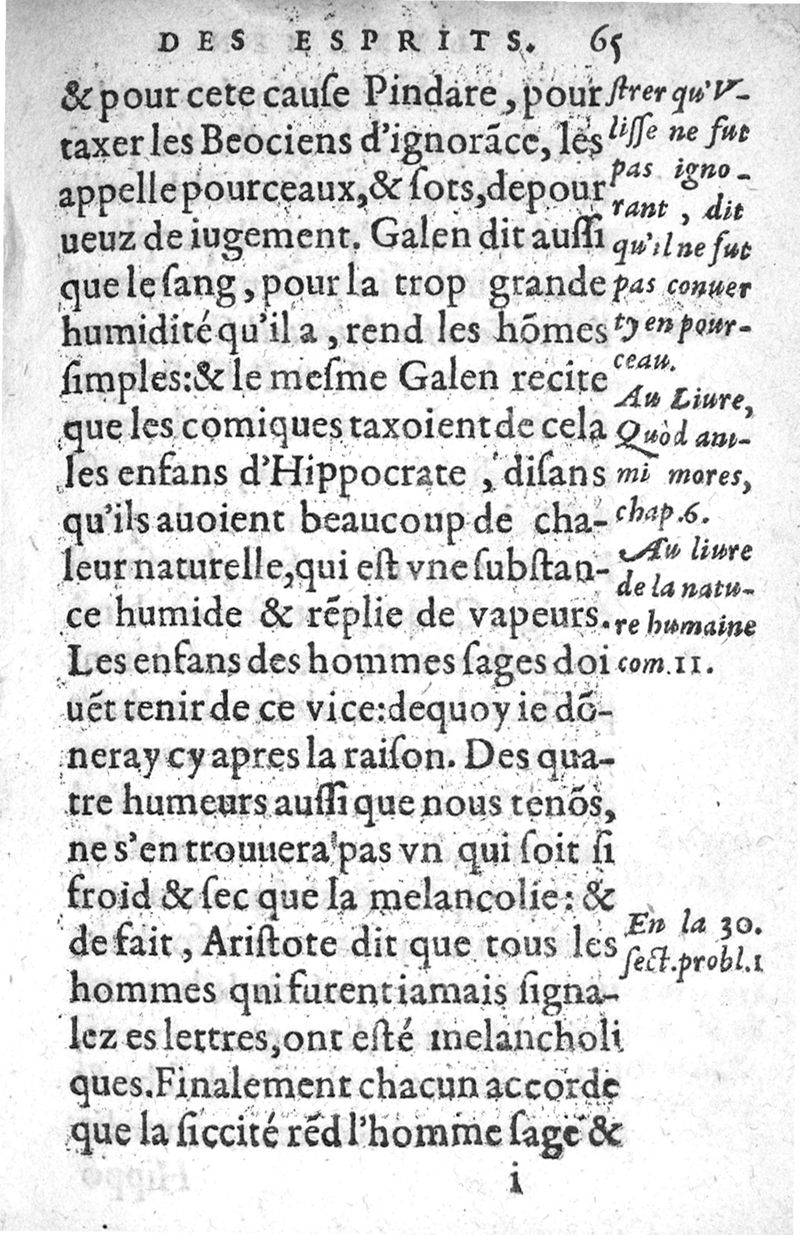 DES ESPRITS. 65
& pour cete cauſe Pindare, pour
taxer les Beociens d'ignorãce, les
appelle pourceaux, & ſots, depour
ueuz de iugement. Galen dit auſſi
que le ſang, pour la trop grande
humidité qu'il a, rend les hõmes
ſimples: & le meſme Galen recite
que les comiques taxoient de cela
les enfans d'Hippocrate, diſans
qu'ils auoient beaucoup de cha-
leur naturelle, qui eſt vne ſubſtan-
ce humide & rẽplie de vapeurs.
Les enfans des hommes ſages doi
uẽt tenir de ce vice: dequoy ie dõ-
neray cy apres la raiſon. Des qua-
tre humeurs auſſi que nous tenõs,
ne s'en trouuera pas vn qui ſoit ſi
froid & ſec que la melancolie: &
de fait, Ariſtote dit que tous les
hommes qui furent iamais ſigna-
lez es lettres, ont eſté melancholi
ques. Finalement chacun accorde
que la ſiccité rẽd l'homme ſage &
i
ſtrer qu'V-
liſſe ne fut
pas igno-
rant, dit
qu'il ne fut
pas conuer
ty en pour-
ceau.
Au Liure,
Quòd ani-
mi mores,
chap. 6.
Au liure
de la natu-
re humaine
com. 11.
En la 30.
ſect. probl. 1